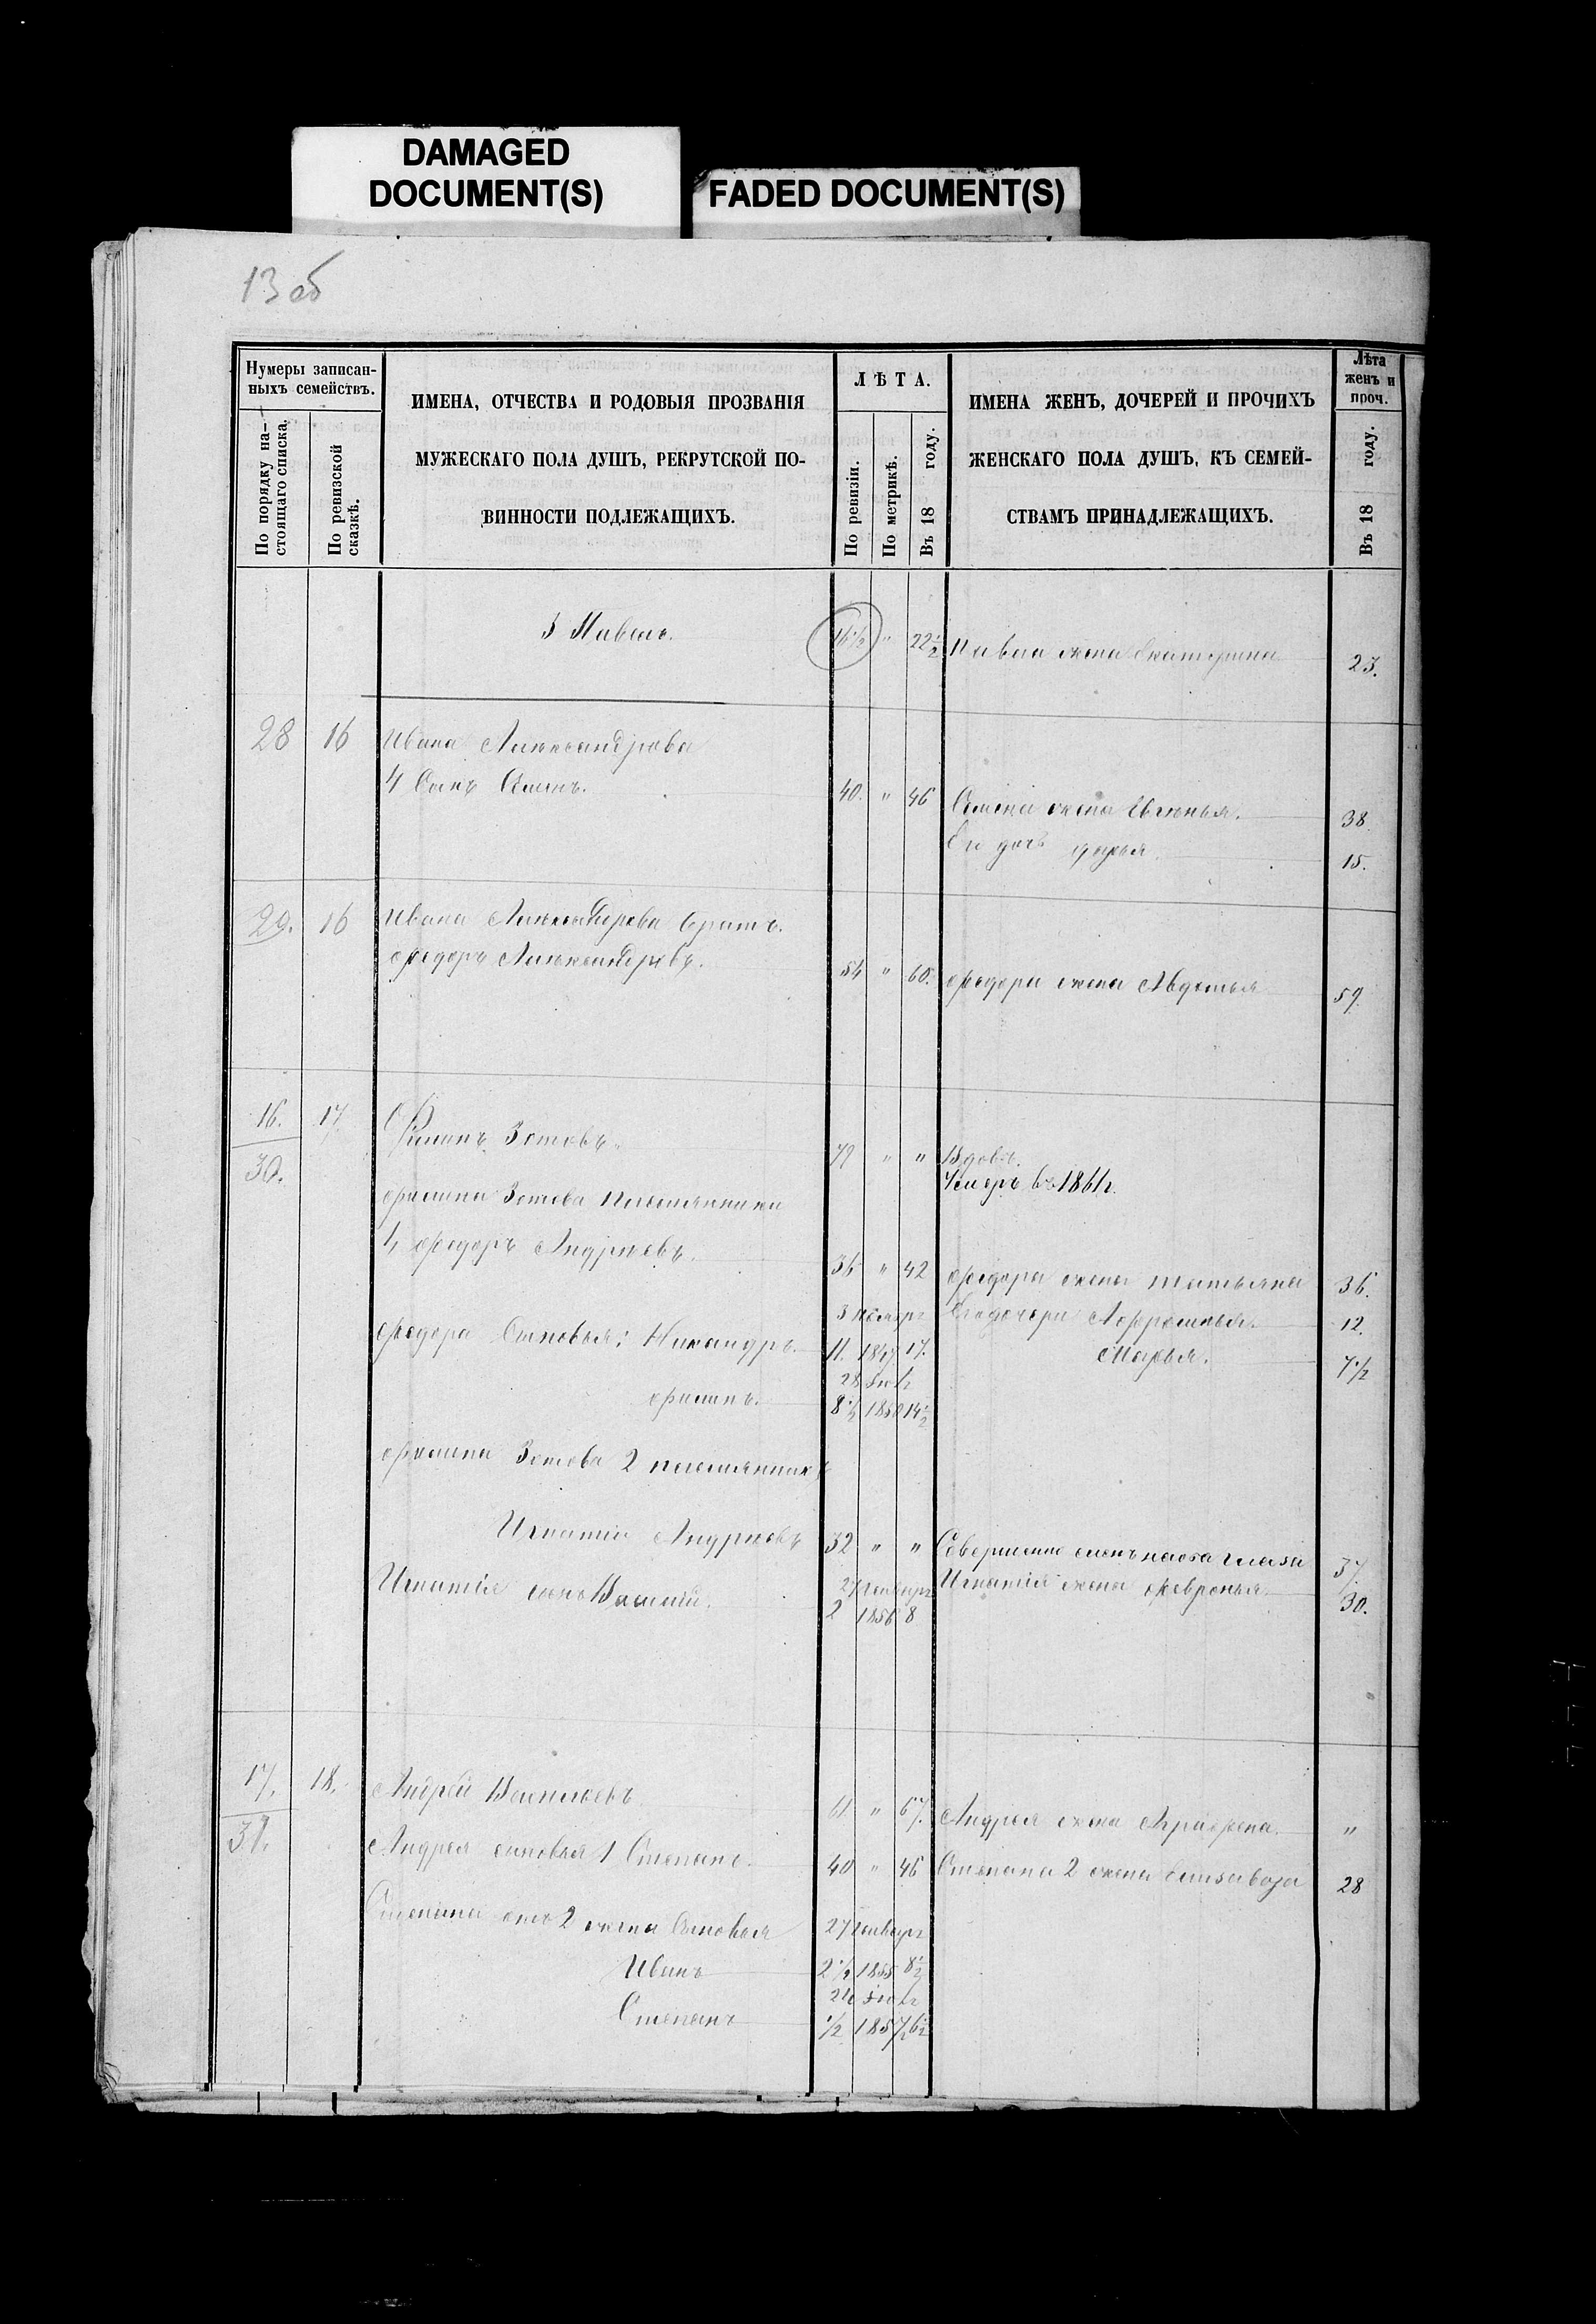 DAMAGED
DOCUMENT(S)
FADED DOCUMENT(S)
13 об
Нумеры записан-
ныхъ семействъ.
По порядку на-
стоящаго списка.
По ревизской
сказкѣ.
ИМЕНА, ОТЧЕСТВА И РОДОВЫЯ ПРОЗВАНІЯ
МУЖЕСКАГО ПОЛА ДУШЪ, РЕКРУТСКОЙ ПО-
ВИННОСТИ ПОДЛЕЖАЩИХЪ.
ЛѢТА.
По ревизіи.
По метрикѣ.
Въ 18 году.
ИМЕНА ЖЕНЪ, ДОЧЕРЕЙ И ПРОЧИХЪ
ЖЕНСКАГО ПОЛА ДУШЪ, КЪ СЕМЕЙ-
СТВАМЪ ПРИНАДЛЕЖАЩИХЪ.
Лѣта
женъ и
проч.
Въ 18 году.
3 Павелъ. 16½ " 22½ Павла жена Екатерина 23.
28 16 Ивана Александрова
4 Сынъ Семенъ. 40. " 46 Семена жена Евгенья. 38.
Ея дочь Дарья. 15.
29. 16 Ивана Александрова братъ.
Федоръ Александровъ. 54 " 60. Федора жена Авдотья 59.
16. 17 Филипъ Зотовъ. 72 " " Вдовъ.
30. Умеръ въ 1861г.
Филипа Зотова племянники
1, Федоръ Андреевъ. 36 " 42 Федора жена Татьяна 36.
3 Ноября Его дочери 12.
Федора Сыновья: Никандръ. 11. 1847 17. Марья. 7½
28 Іюля
Филипъ. 8½ 1850 14½
Филипа Зотова 2 племянникъ
Игнатій Андреевъ 32 " " 37.
Игнатія сынъ Василій. 27 Генваря Игнатія жена Февронья. 30.
2 1856 8
17. 18. Андрей Васильевъ 61. " 67. Андрея жена Аграфена. "
31. Андрея сыновья 1 Степанъ. 40 " 46 Степана 2 жена Елизавета 28
Степана отъ 2 жены Сыновья 27 Генваря
Иванъ 2½ 1855 8½
24 Іюля
Степанъ ½ 1857 6½